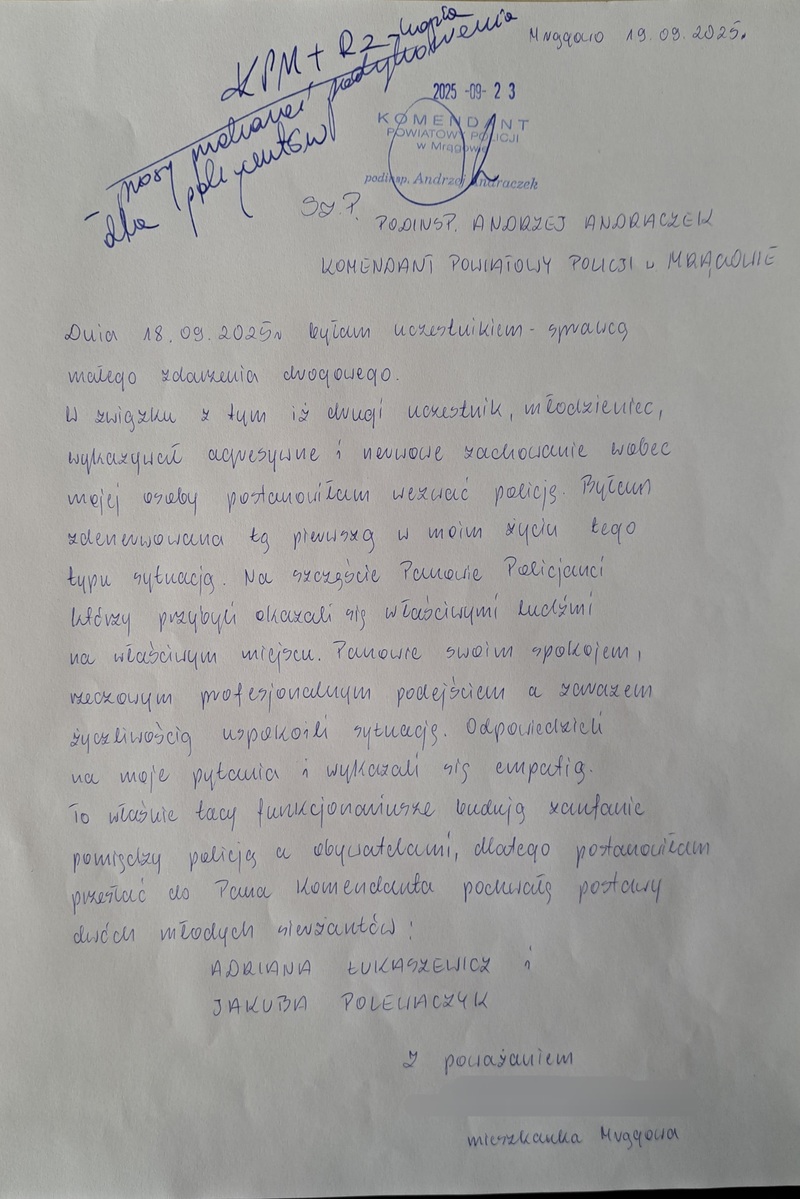 Mrągowo 19.09.2025r.
KPM + Rz - kopia
- proszę podziękowania
dla policjantów
2025 -09- 23
KOMENDANT
POWIATOWY POLICJI
w Mrągowie
podinsp. Andrzej Andraczek
Sz.P.
PODINSP. ANDRZEJ ANDRACZEK
KOMENDANT POWIATOWY POLICJI w MRĄGOWIE
Dnia 18.09.2025r byłam uczestnikiem - sprawcą
małego zdarzenia drogowego.
W związku z tym iż drugi uczestnik, młodzieniec,
wykazywał agresywne i nerwowe zachowanie wobec
mojej osoby postanowiłam wezwać policję. Byłam
zdenerwowana tą pierwszą w moim życiu tego
typu sytuacją. Na szczęście Panowie Policjanci
którzy przybyli okazali się właściwymi ludźmi
na właściwym miejscu. Panowie swoim spokojem,
rzeczowym profesjonalnym podejściem a zarazem
życzliwością uspokoili sytuację. Odpowiedzieli
na moje pytania i wykazali się empatią.
To właśnie tacy funkcjonariusze budują zaufanie
pomiędzy policją a obywatelami, dlatego postanowiłam
przesłać do Pana Komendanta pochwałę postawy
dwóch młodych sierżantów:
ADRIANA ŁUKASZEWICZ i
JAKUBA POLEWACZYK
Z poważaniem
mieszkanka Mrągowa